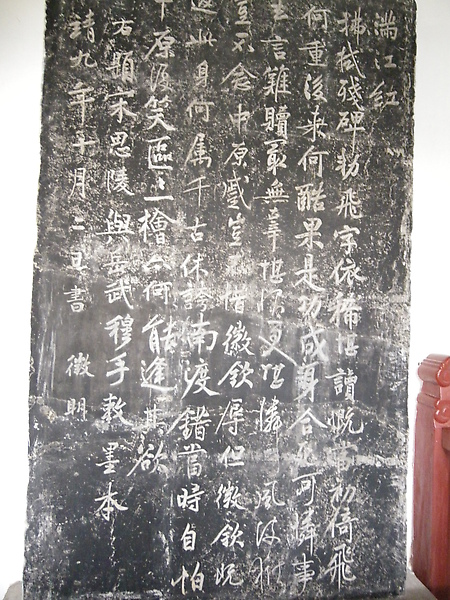 滿江紅
拂拭殘碑勑飛字依稀堪讀慨當初倚飛
何重後来何酷果是功成身合死可憐事
去言難贖最無辜堪恨更堪憐風波獄
豈不念中原蹙豈不惜徽欽辱但徽欽既
返此身何属千古休誇南渡錯當時自怕
中原復笑區〻一檜亦何能逢其欲
右題宋思陵與岳武穆手敕墨本
靖九年十月二日書 徵明